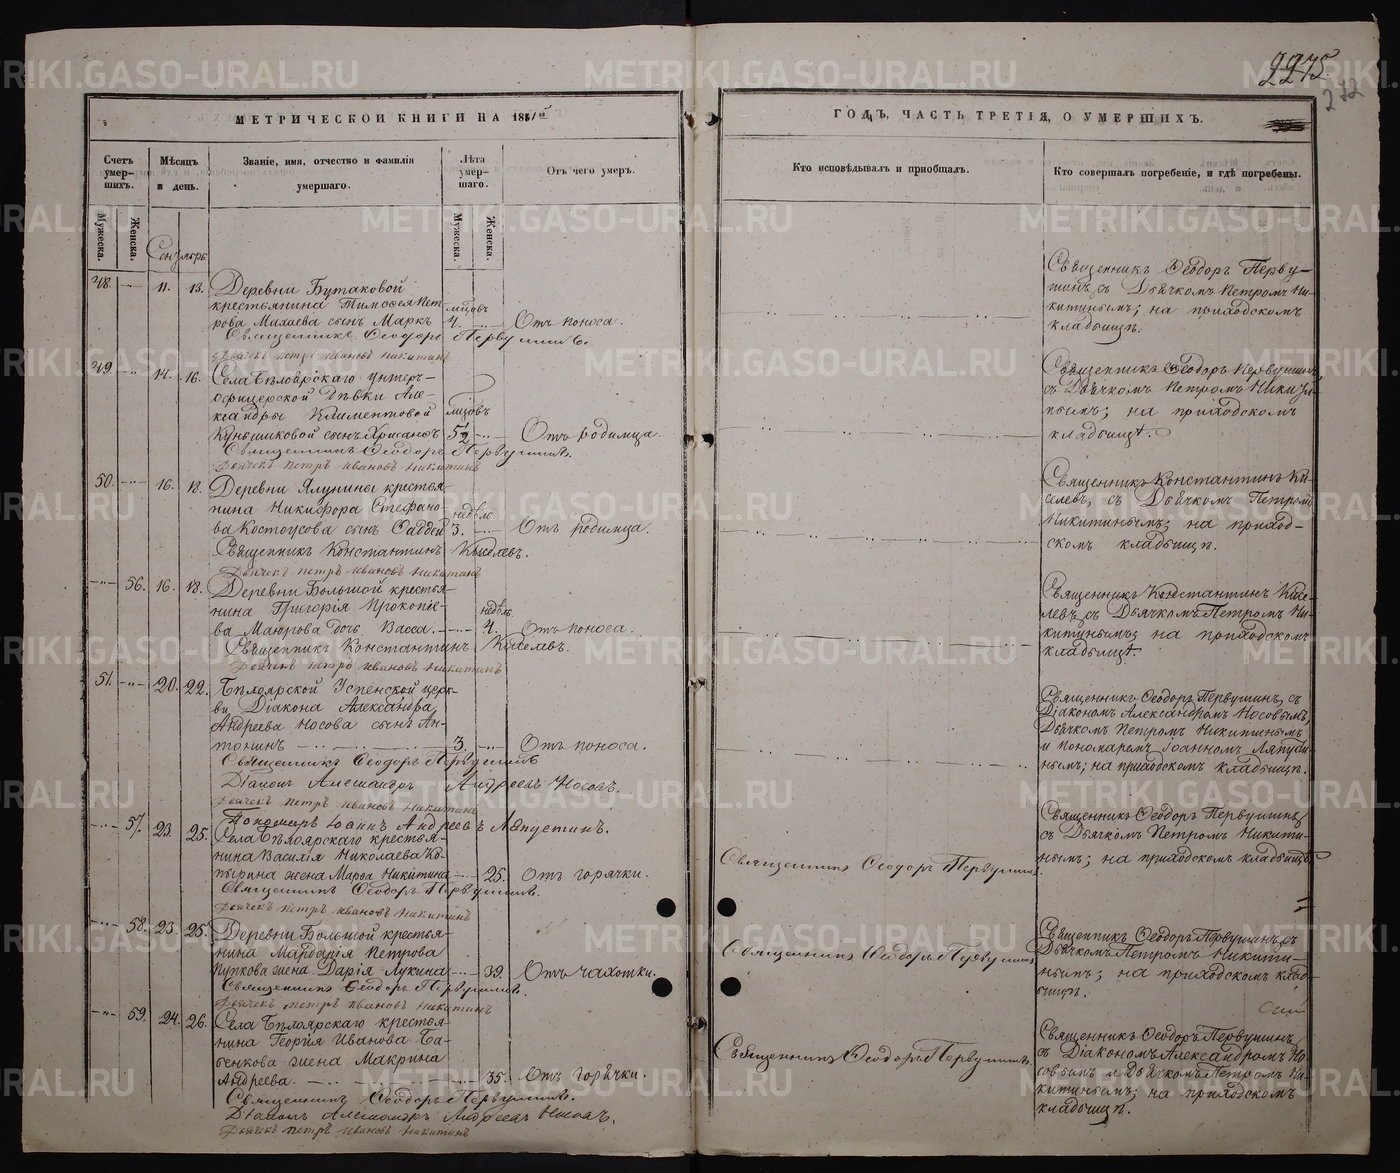 2275
272
МЕТРИЧЕСКОЙ КНИГИ НА 1861й
ГОДЪ, ЧАСТЬ ТРЕТІЯ, О УМЕРШИХЪ.
Счетъ умер-шихъ.
Мѣсяцъ и день.
Званіе, имя, отчество и фамилія умершаго.
Лѣта умер-шаго.
Отъ чего умеръ.
Кто исповѣдывалъ и пріобщалъ.
Кто совершалъ погребеніе, и гдѣ погребены.
Мужеска.
Женска.
Мужеска.
Женска.
Сентябрь
48. 11. 13. Деревни Бутаковой
крестьянина Тимоѳея Пет-
рова Махаева сынъ Маркъ
мѣсяцовъ
4.
Отъ поноса.
Священникъ Ѳеодоръ Первушинъ.
Дьячекъ Петръ Ивановъ Никитинъ
Священникъ Ѳеодоръ Перву-
шинъ, съ Дьячкомъ Петромъ Ни-
китинымъ; на приходскомъ
кладбищѣ.
49. 14. 16. Села Бѣлоярскаго унтеръ-
офицерской дѣвки Але-
ксандры Климентовой
сынъ
5½
Отъ родимца.
Священникъ Ѳеодоръ Первушинъ.
Дьячекъ Петръ Ивановъ Никитинъ
Священникъ Ѳеодоръ Первушинъ,
съ Дьячкомъ Петромъ Никити-
нымъ; на приходскомъ
кладбищѣ.
50. 16. 18. Деревни Ялунины крестья-
нина Никифора Стефано-
ва Костоусова сынъ Ѳаддей
недѣль
3.
Отъ родимца.
Священникъ Константинъ Киселевъ.
Дьячекъ Петръ Ивановъ Никитинъ
Священникъ Константинъ Ки-
селевъ, съ Дьячкомъ Петромъ
Никитинымъ; на приход-
скомъ кладбищѣ.
56. 16. 18. Деревни Большой крестья-
нина Григорія Прокопіе-
ва Маюрова дочь Васса.
недѣль
4.
Отъ поноса.
Священникъ Константинъ Киселевъ.
Дьячекъ Петръ Ивановъ Никитинъ
Священникъ Константинъ Кисе-
левъ, съ Дьячкомъ Петромъ Ни-
китинымъ; на приходскомъ
кладбищѣ.
51. 20. 22. Бѣлоярской Успенской церк-
ви Діакона Александра
Андреева Носова сынъ Ан-
тонинъ
3.
Отъ поноса.
Священникъ Ѳеодоръ Первушинъ
Діаконъ Александръ Андреевъ Носовъ.
Дьячекъ Петръ Ивановъ Никитинъ
Пономарь Іоаннъ Андреевъ Ляпустинъ.
Священникъ Ѳеодоръ Первушинъ, съ
Діакономъ Александромъ Носовымъ,
Дьячкомъ Петромъ Никитинымъ
и пономаремъ Іоанномъ Ляпусти-
нымъ; на приходскомъ кладбищѣ.
57. 23. 25. Села Бѣлоярскаго крестья-
нина Василія Николаева Ко-
пырина жена Марѳа Никитина
25.
Отъ горячки.
Священникъ Ѳеодоръ Первушинъ.
Дьячекъ Петръ Ивановъ Никитинъ
Священникъ Ѳеодоръ Первушинъ.
Священникъ Ѳеодоръ Первушинъ,
съ Дьячкомъ Петромъ Никити-
нымъ; на приходскомъ кладбищѣ
58. 23. 25. Деревни Большой крестья-
нина Мардарія Петрова
Пупкова жена Дарія Лукина
39.
Отъ чахотки.
Священникъ Ѳеодоръ Первушинъ.
Дьячекъ Петръ Ивановъ Никитинъ
Священникъ Ѳеодоръ Первушинъ
Священникъ Ѳеодоръ Первушинъ, съ
Дьячкомъ Петромъ Никити-
нымъ; на приходскомъ клад-
бищѣ.
59. 24. 26. Села Бѣлоярскаго крестья-
нина Георгія Иванова Ба-
бенкова жена Макрина
Андреева.
35.
Отъ горячки.
Священникъ Ѳеодоръ Первушинъ.
Діаконъ Александръ Андреевъ Носовъ.
Дьячекъ Петръ Ивановъ Никитинъ
Священникъ Ѳеодоръ Первушинъ
Священникъ Ѳеодоръ Первушинъ,
съ Діакономъ Александромъ Но-
совымъ и Дьячкомъ Петромъ Ни-
китинымъ; на приходскомъ
кладбищѣ.
METRIKI.GASO-URAL.RU